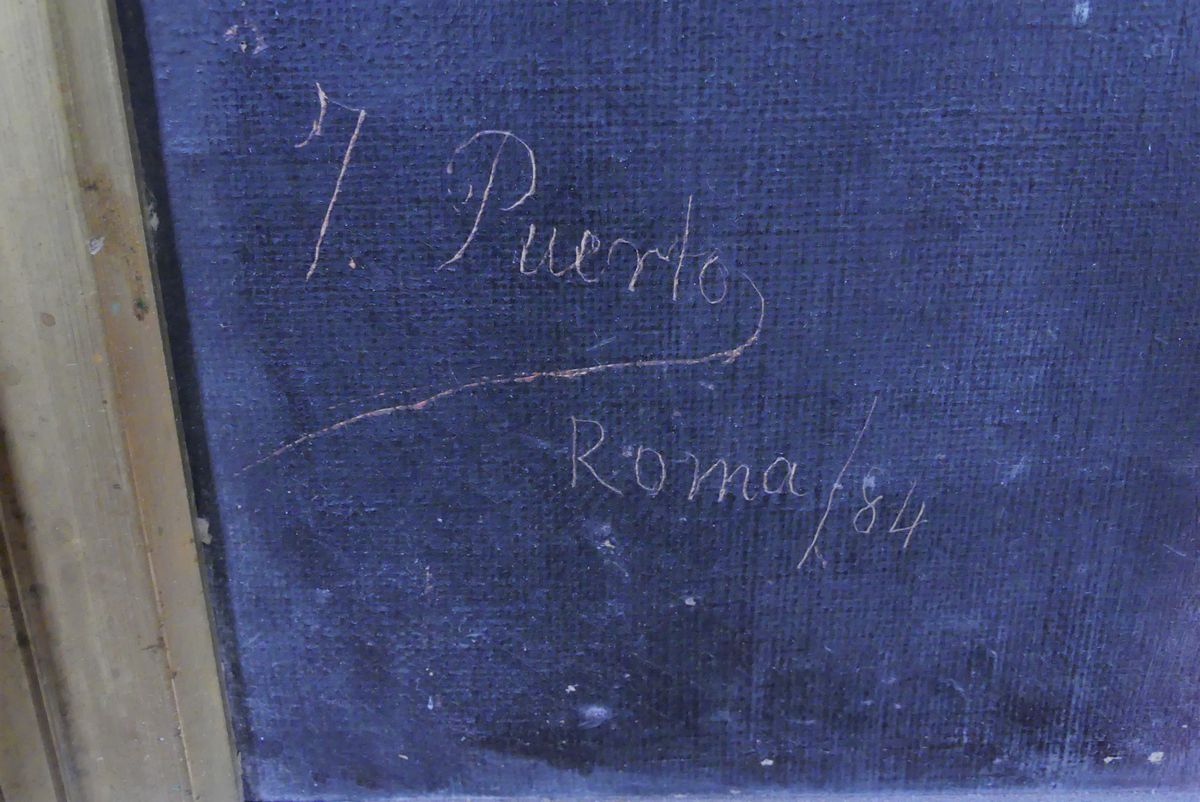 J. Puerto
Roma/84